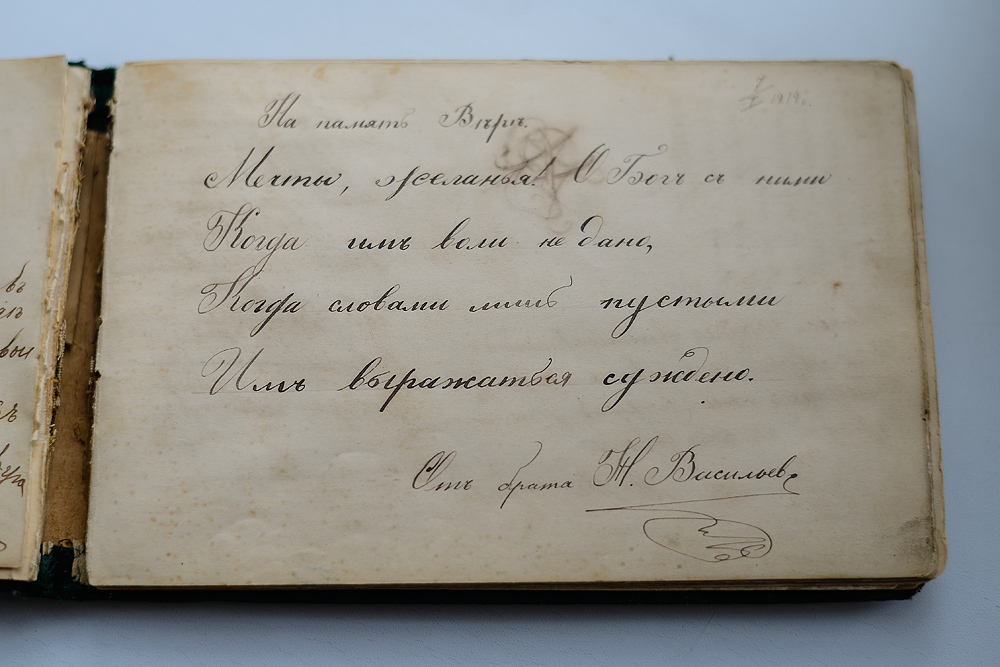 На память Вѣрѣ.
Мечты, желанья! О Богъ съ ними
Когда имъ воли не дано,
Когда словами лишь пустыми
Имъ выражаться суждено.
Отъ брата Н. Васильев
1919г.